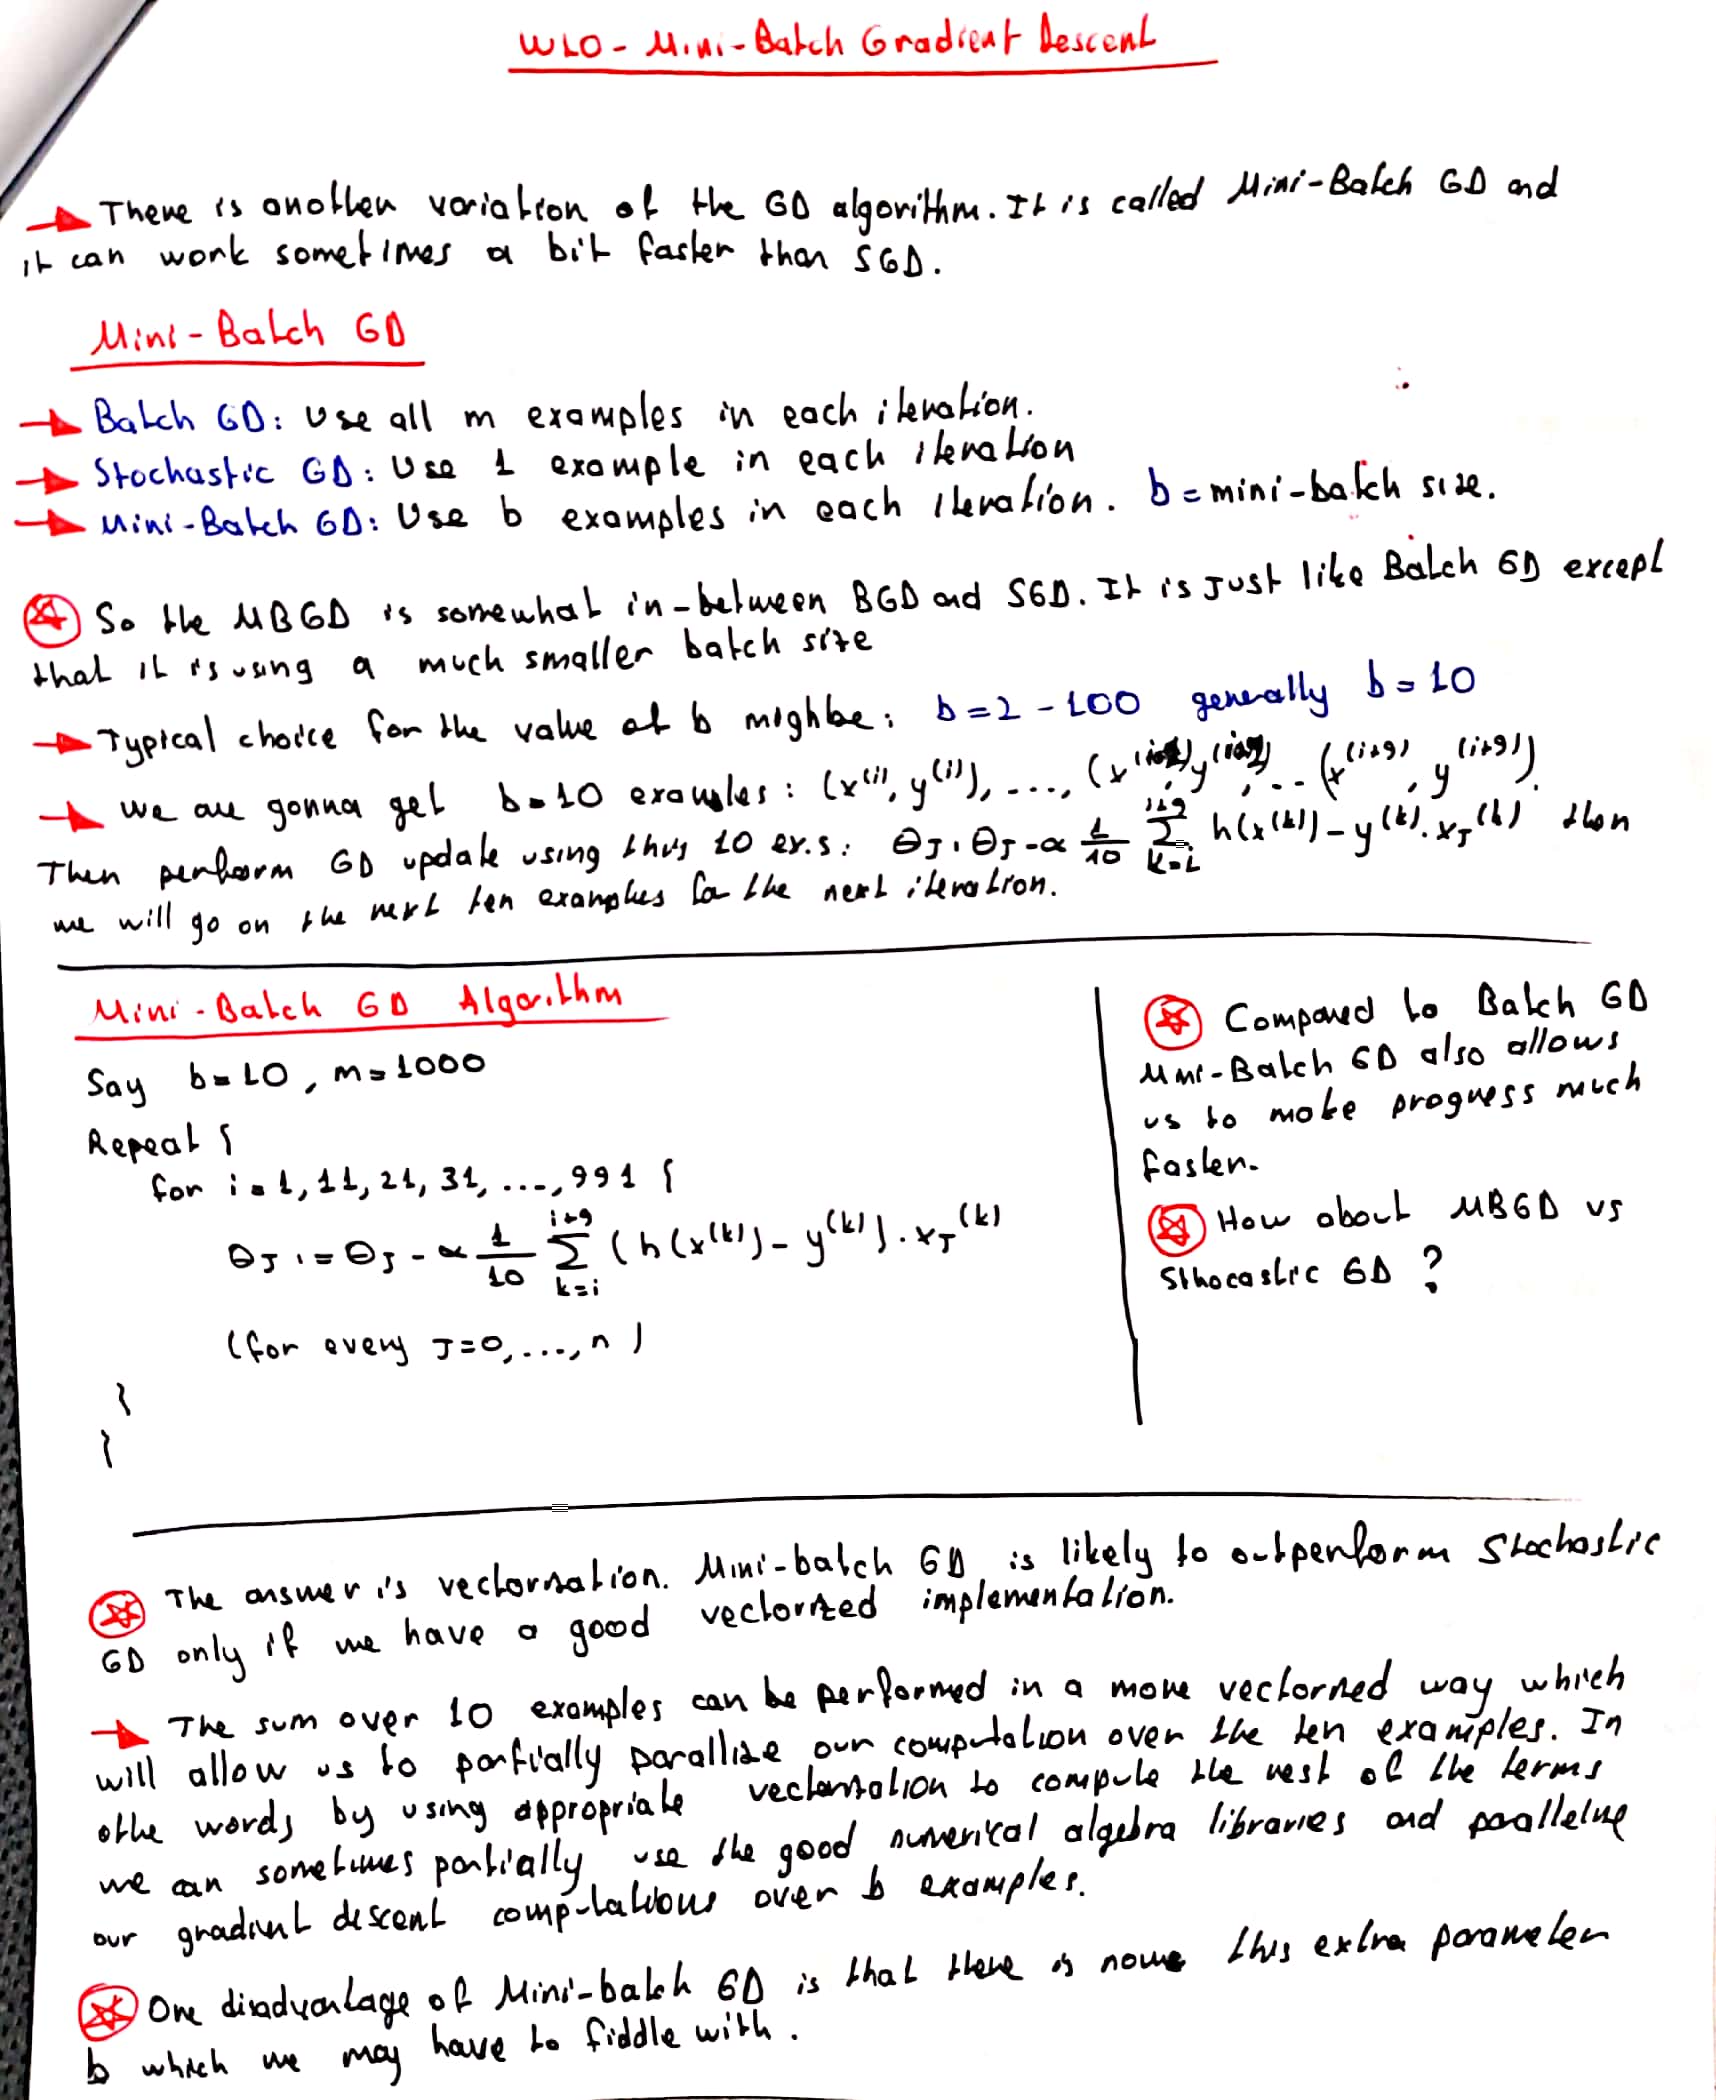 W10 - Mini-Batch Gradient Descent
→ There is another variation of the GD algorithm. It is called Mini-Batch GD and
it can work sometimes a bit faster than SGD.
Mini-Batch GD
→ Batch GD: Use all m examples in each iteration.
→ Stochastic GD: Use 1 example in each iteration
→ Mini-Batch GD: Use b examples in each iteration. b = mini-batch size.
So the MBGD is somewhat in-between BGD and SGD. It is Just like Batch GD except
that it is using a much smaller batch size
→ Typical choice for the value of b mighbe: b=2-100 generally b=10
→ We are gonna get b=10 examples: (x^(i), y^(i)), ..., (x^(i+9), y^(i+9)).
Then perform GD update using thus 10 ex.s: θJ: θJ - α 1/10 Σ_{k=i}^{i+9} h(x^(k)) - y^(k). xJ^(k) then
we will go on the next ten examples for the next iteration.
Mini-Batch GD Algorithm
Say b=10, m=1000
Repeat {
for i=1, 11, 21, 31, ..., 991 {
θJ := θJ - α 1/10 Σ_{k=i}^{i+9} (h(x^(k)) - y^(k)). xJ^(k)
(for every J=0, ..., n)
}
}
Compared to Batch GD
Mini-Batch GD also allows
us to make progress much
faster.
How about MBGD vs
Sthocastic GD?
The answer is vectorization. Mini-batch GD is likely to outperform Stochastic
GD only if we have a good vectorized implementation.
→ The sum over 10 examples can be performed in a more vectorized way which
will allow us to partially parallize our computation over the ten examples. In
othe words by using appropriate vectorization to compute the rest of the terms
we can sometimes partially use the good numerical algebra libraries and parallelize
our gradient descent computations over b examples.
One disadvantage of Mini-batch GD is that there is now this extra parameter
b which we may have to fiddle with.